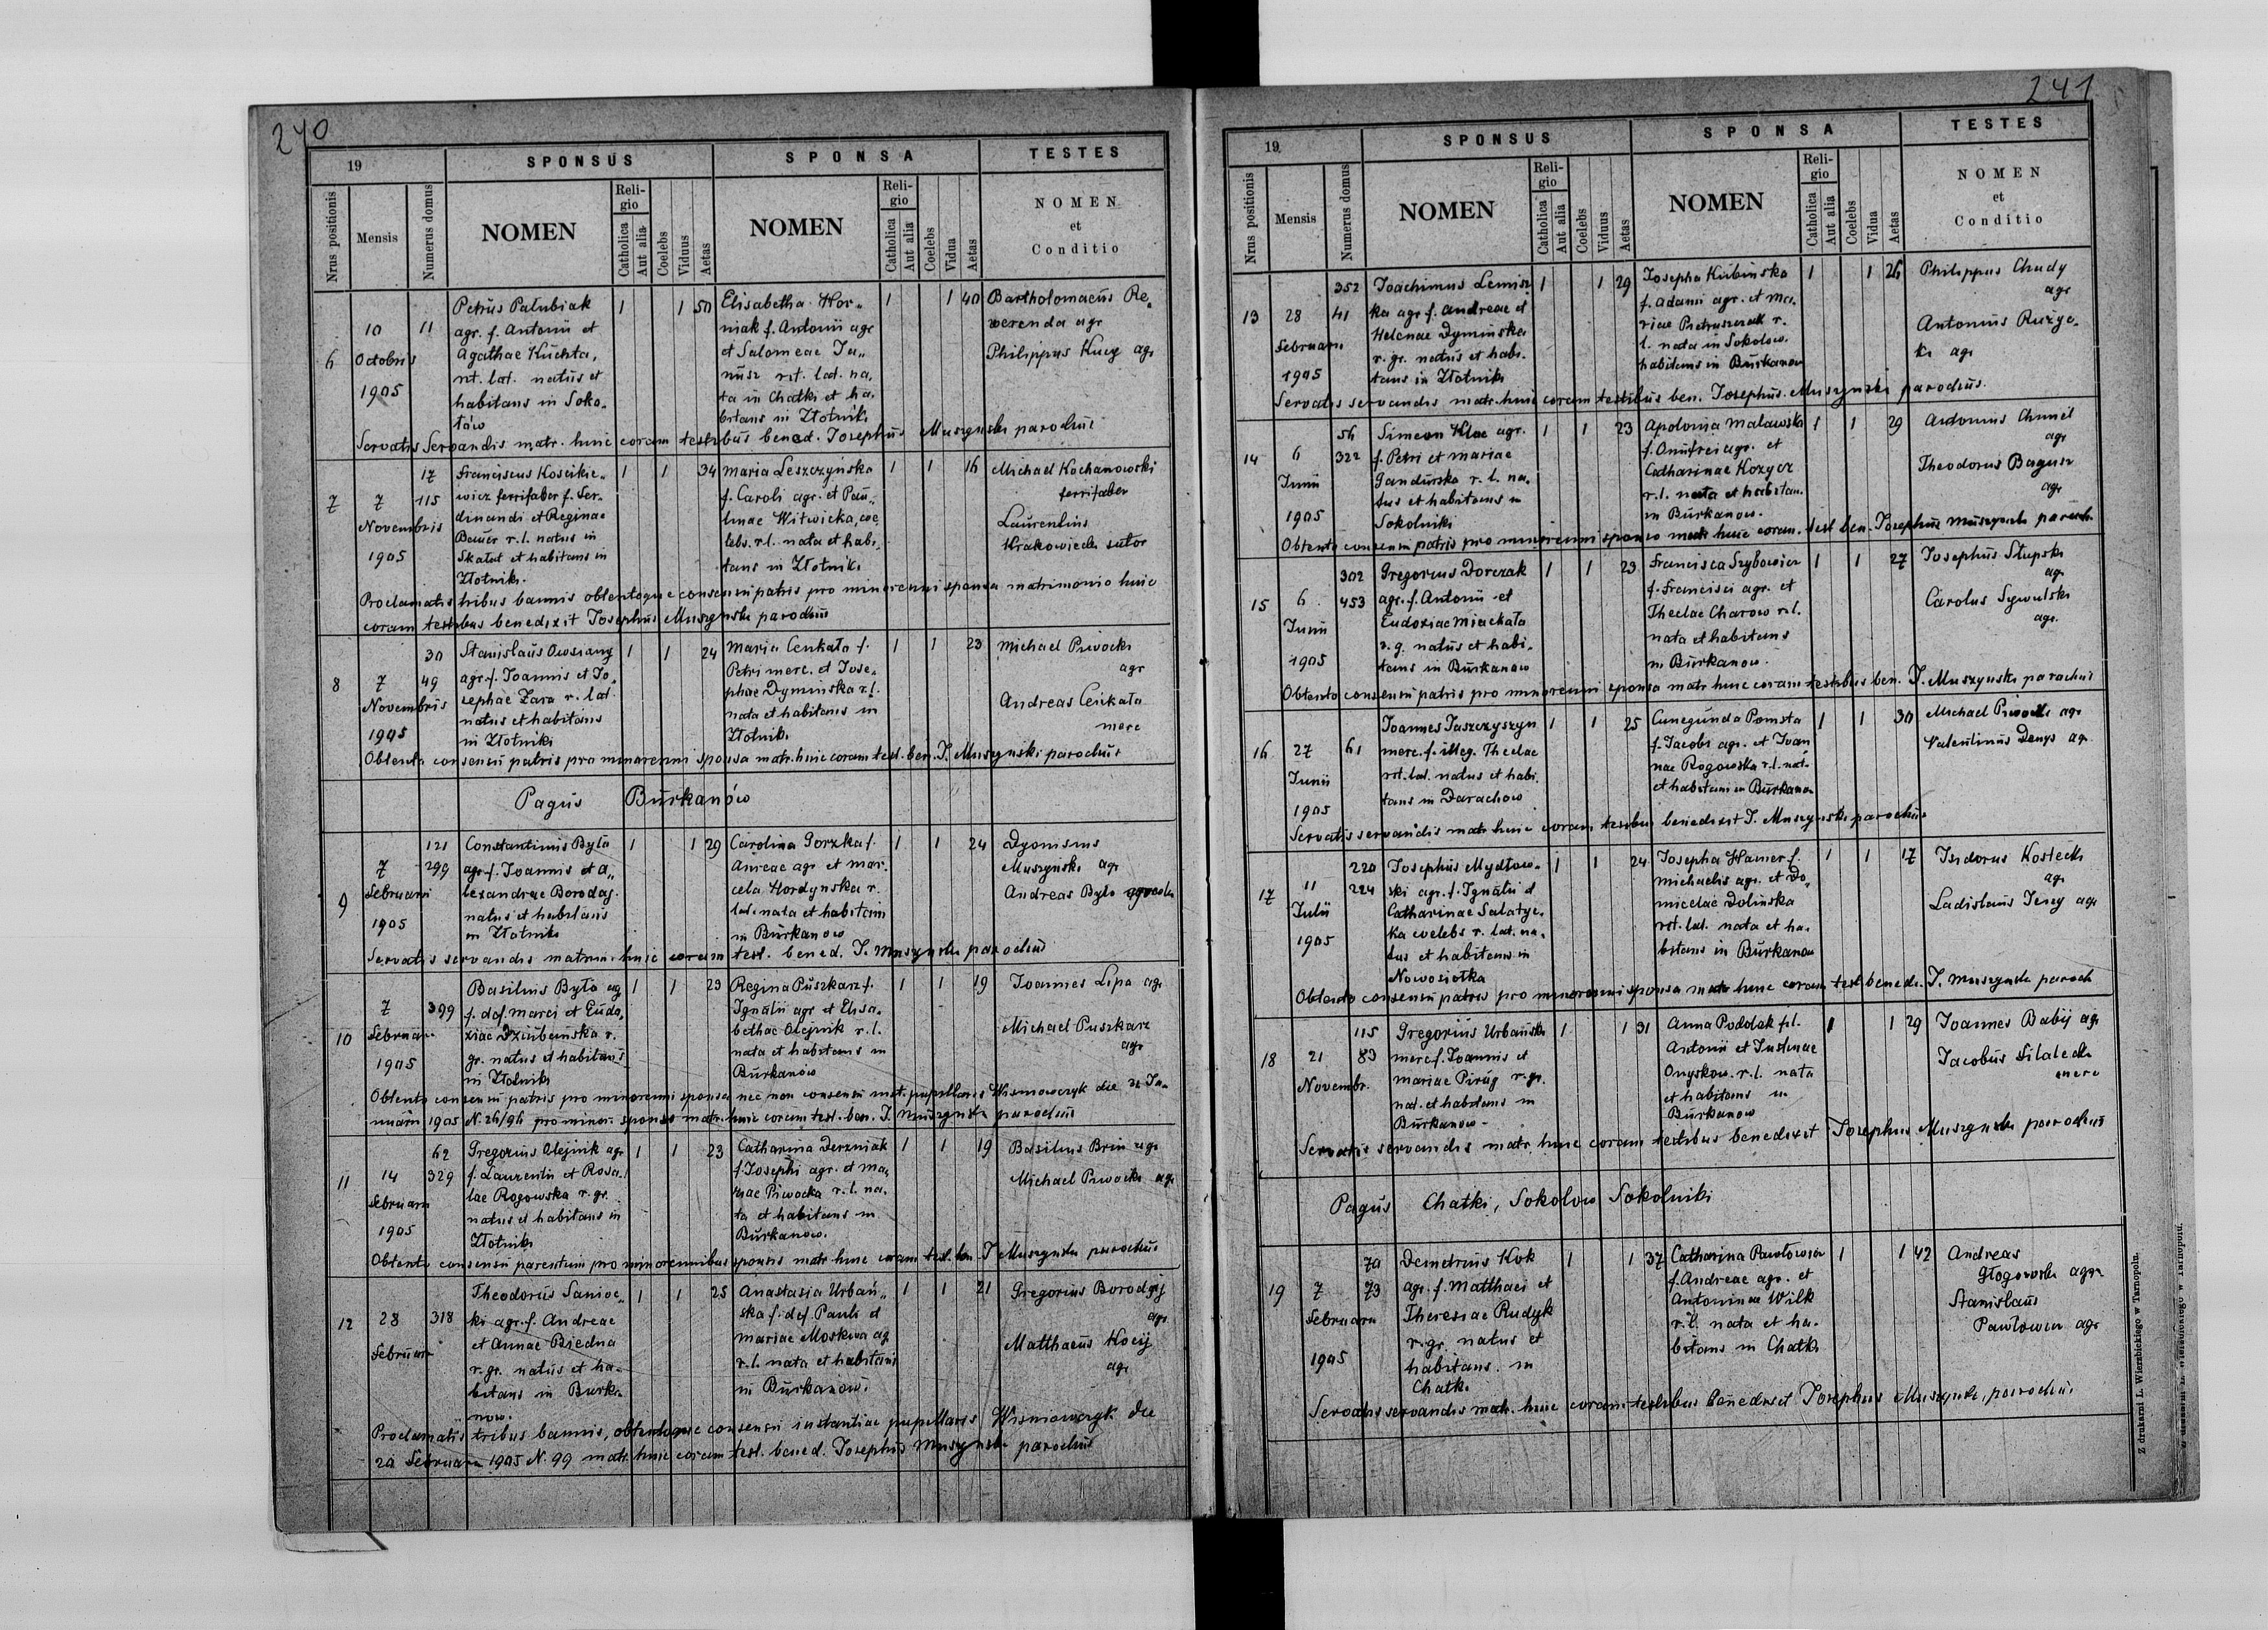 240
19
SPONSUS
SPONSA
TESTES
Nrus positionis
Mensis
Numerus domus
NOMEN
Religio
Catholica
Aut alia
Coelebs
Viduus
Aetas
NOMEN
Religio
Catholica
Aut alia
Coelebs
Vidua
Aetas
NOMEN
et
Conditio
6
10
Octobris
1905
11
Petrus Palubiak
agr. f. Antonii et
Agathae Kuchta,
rit. lat. natus et
habitans in Soko-
łów
1 1 50
Elisabetha Hor-
niak f. Antonii agr
et Salomeae Ja-
nusz rit. lat. na-
ta in Chatki et ha-
bitans in Złotniki
1 1 40
Bartholomaeus Re-
verenda agr
Philippus Kucy agr
Servatis Servandis matr. huic coram testibus bened. Josephus Muszynski parochus
7
7
Novembris
1905
17
115
Franciscus Koscikie-
wicz ferrifaber f. Fer-
dinandi et Reginae
Bauer r.l. natus in
Skałat et habitans in
Złotniki.
1 1 34
Maria Leszczyńska
f. Caroli agr. et Pau-
linae Witwicka, coe-
lebs. r.l. nata et habi-
tans in Złotniki
1 1 16
Michael Kochanowski
ferrifaber
Laurentius
Krakowiecki sutor
Proclamatis tribus bannis obtentoque consensu patris pro minorenni sponsa matrimonio huic
coram testibus benedixit Josephus Muszynski parochus
8
7
Novembris
1905
30
49
Stanislaus Owsiany
agr. f. Joannis et Jo-
sephae Zara r. lat.
natus et habitans
in Złotniki
1 1 24
Maria Cenkała f.
Petri merc. et Jose-
phae Dyminska r.l.
nata et habitans in
Złotniki
1 1 23
Michael Piwocki
agr
Andreas Cenkała
merc
Obtento consensu patris pro minorenni sponsa matr. huic coram test. ben. J. Muszynski parochus
Pagus Burkanów
9
7
Februarii
1905
121
299
Constantinus Byla
agr. f. Joannis et A-
lexandrae Boroday
natus et habitans
in Złotniki
1 1 29
Carolina Gorzka f.
Andreae agr et Mar-
cela Hordynska r.
lat. nata et habitans
in Burkanow
1 1 24
Dyonisius
Muszynski agr
Andreas Bylo agricola
Servatis servandis matrim. huic coram test. bened. J. Muszynski parochus
10
7
Februarii
1905
399
Basilius Bylo agr
f. def. Marci et Eudo-
xiae Dziubemska r.
gr. natus et habitans
in Złotniki
1 1 23
Regina Puszkarz f.
Ignatii agr et Elisa-
bethae Olejnik r.l.
nata et habitans in
Burkanów
1 1 19
Joannes Lipa agr
Michael Puszkarz
agr
Obtento consensu patris pro minorenni sponsa nec non consensu inst. pupillaris Wisniowczyk die Ja-
nuarii 1905 N. 26/96 pro minor. sponso matr. huic coram test. ben. J. Muszynski parochus
11
14
Februarii
1905
62
329
Gregorius Olejnik agr
f. Laurentii et Rosa-
lae Rogowska r. gr.
natus et habitans in
Złotniki
1 1 23
Catharina Derzniak
f. Josephi agr. et Ma-
riae Piwocka r.l. na-
ta et habitans in
Burkanow.
1 1 19
Basilius Brin agr
Michael Piwocki agr
Obtento consensu parentum pro minorennibus sponsis matr huic coram test. ben. J Muszynski parochus
12
28
Februarii
318
Theodorus Sanoc-
ki agr. f. Andreae
et Annae Biedna
r. gr. natus et ha-
bitans in Burka-
now.
1 1 25
Anastasia Urbań-
ska f. def Pauli et
Mariae Moskwa agr
r.l. nata et habitans
in Burkanow.
1 1 21
Gregorius Borodaj
agr
Matthaeus Kocij
agr
Proclamatis tribus bannis, obtentoque consensu instantiae pupillaris Wisniowczyk die
Februarii 1905 N. 99 matr. huic coram test. bened. Josephus Muszynski parochus
241
19
SPONSUS
SPONSA
TESTES
Nrus positionis
Mensis
Numerus domus
NOMEN
Religio
Catholica
Aut alia
Coelebs
Viduus
Aetas
NOMEN
Religio
Catholica
Aut alia
Coelebs
Vidua
Aetas
NOMEN
et
Conditio
13
28
Februarii
1905
352
41
Joachimus Lemisz-
ka agr f. Andreae et
Helenae Dyminska
r. gr. natus et habi-
tans in Złotniki
1 1 29
Josepha Kubinska
f. Adami agr. et Ma-
riae Pietruszczak r.
l. nata in Sokolow.
habitans in Burkanow
1 1 26
Philippus Chudy
agr
Antonius Ruzyc-
ki agr
Servatis servandis matr. huic coram testibus ben. Josephus Muszynski parochus.
14
6
Junii
1905
56
322
Simeon Klac agr.
f. Petri et Mariae
Gandurska r. l. na-
tus et habitans in
Sokolniki
1 1 23
Apolonia Malawska
f. Onufrei agr. et
Catharinae Kozycz
r.l. nata et habitan.
in Burkanow.
1 1 29
Antonius Chmel
agr
Theodorus Bagusz
agr
Obtento consensu patris pro minorenni sponso matr huic coram. test ben. Josephus Muszynski paroch.
15
6
Junii
1905
302
453
Gregorius Dorczak
agr. f. Antonii et
Eudoxiae Miackała
r. g. natus et habi-
tans in Burkanow
1 1 23
Francisca Szybowicz
f. Francisci agr. et
Theclae Charow r.l.
nata et habitans
in Burkanow.
1 1 27
Josephus Słupski
agr
Carolus Sywulski
agr.
Obtento consensu patris pro minorenni sponsa matr huic coram testibus ben. J. Muszynski parochus
16
27
Junii
1905
61
Joannes Jaszczyszyn
merc. f. illeg. Theclae
rit. lat. natus et habi-
tans in Darachow
1 1 25
Cunegunda Pomsta
f. Jacobi agr. et Joan-
nae Rogowska r.l. nat.
et habitans in Burkanow
1 1 30
Michael Piwocki agr
Valentinus Denys agr
Servatis servandis matr huic coram testibus benedixit J. Muszynski parochus
17
11
Julii
1905
220
224
Josephus Mydłow-
ski agr. f. Ignatii et
Catharinae Salatyc-
ka coelebs r. lat. na-
tus et habitans in
Nowosiolka
1 1 24
Josepha Hamer f.
Michaelis agr. et Do-
micelae Dolinska
rit. lat. nata et ha-
bitans in Burkanow
1 1 17
Isidorus Kostecki
agr
Ladislaus Jerzy agr
Obtento consensu patris pro minorenni sponsa matr huic coram test bened. J. Muszynski paroch
18
21
Novembr.
115
83
Gregorius Urbański
merc f. Joannis et
Mariae Pirug r. gr.
nat. et habitans in
Burkanow.
1 1 31
Anna Podolak fil.
Antonii et Justinae
Onyskow. r.l. nata
et habitans in
Burkanow
1 1 29
Joannes Babij agr
Jacobus Filalecki
merc
Servatis servandis matr. huic coram testibus benedixit Josephus Muszynski parochus
Pagus Chatki, Sokolow Sokolniki
19
7
Februarii
1905
70
73
Demetrius Kok
agr. f. Matthaei et
Theresiae Rudyk
r. gr. natus et
habitans in
Chatki
1 1 37
Catharina Pawłowicz
f. Andreae agr. et
Antoninae Wilk
r.l. nata et ha-
bitans in Chatki
1 1 42
Andreas
Głogowski agr
Stanislaus
Pawłowicz agr
Servatis servandis matr. huic coram testibus benedixit Josephus Muszynski, parochus
Z drukarni L. Wierzbickiego w Tarnopolu.